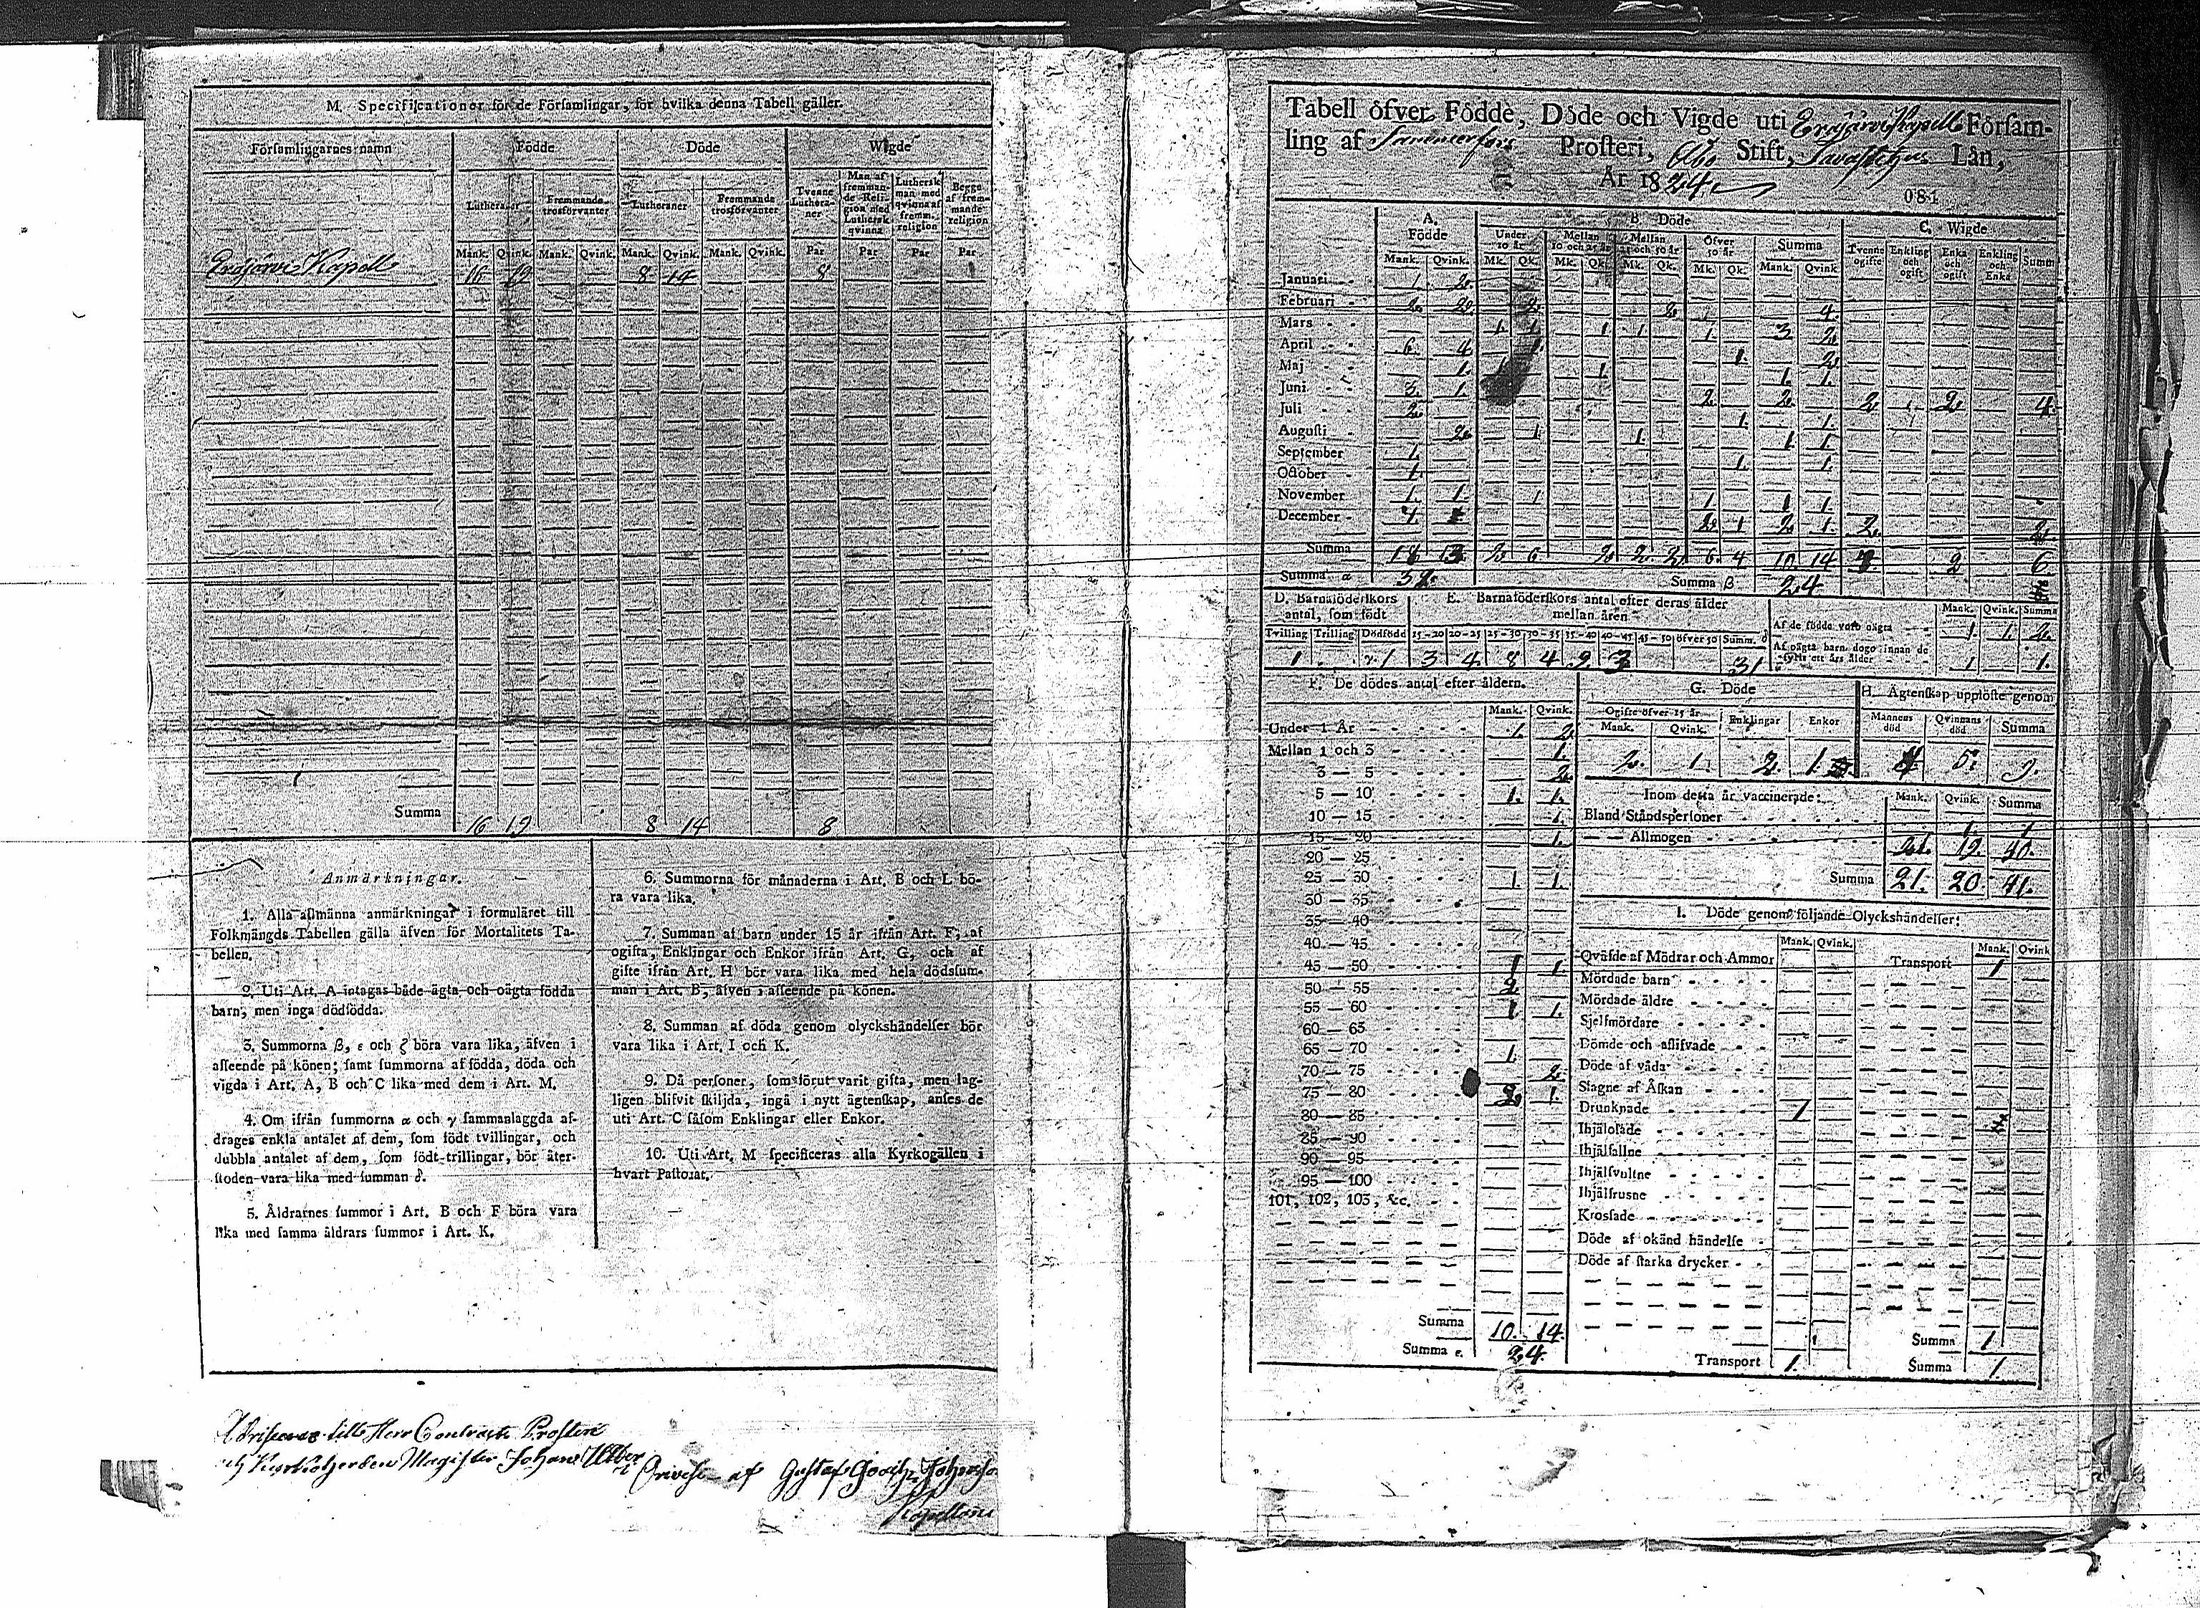 M. Specificationer för de Församlingar, för hvilka denna Tabell gäller.
Församlingarnes namn Födde Döde Wigde
Lutheraner Fremmande trosförvanter Lutheraner Fremmande trosförvanter Tvenne Lutheraner Man af fremmande Religion med Luthersk qvinna Luthersk man med qvinna af fremm. religion Begge af fremmande religion
Mank. Qvink. Mank. Qvink. Mank. Qvink. Mank. Qvink. Par Par Par Par
Erajärvi Kapell 16 19 8 14 8
Summa 16 19 8 14 8
Anmärkningar.
1. Alla allmänna anmärkningar i formuläret till
Folkmängds Tabellen gälla äfven för Mortalitets Ta-
bellen.
2. Uti Art. A intagas både ägta och oägta födda
barn, men inga dödfödda.
3. Summorna β, ε och ζ böra vara lika, äfven i
afseende på könen; samt summorna af födda, döda och
vigda i Art. A, B och C lika med dem i Art. M.
4. Om ifrån summorna α och γ sammanlaggda af-
drages enkla antalet af dem, som födt tvillingar, och
dubbla antalet af dem, som födt trillingar, bör åter-
stoden vara lika med summan δ.
5. Åldrarnes summor i Art. B och F böra vara
lika med samma åldrars summor i Art. K.
6. Summorna för månaderna i Art. B och L bö-
ra vara lika.
7. Summan af barn under 15 år ifrån Art. F, af
ogifta, Enklingar och Enkor ifrån Art. G, och af
gifte ifrån Art. H bör vara lika med hela dödssum-
man i Art. B, äfven i afseende på könen.
8. Summan af döda genom olyckshändelser bör
vara lika i Art. I och K.
9. Då personer, som förut varit gifta, men lag-
ligen blifvit skiljda, ingå i nytt ägtenskap, anses de
uti Art. C såsom Enklingar eller Enkor.
10. Uti Art. M specificeras alla Kyrkogällen i
hvart Pastorat.
till Herr Contracts Prosten
Magister Johan
af Gustaf
Tabell öfver Födde, Döde och Vigde uti Erajärvi Kapells Församling
ling af Tammerfors Prosteri, Åbo Stift, Tavastehus Län,
År 1824
081
A. Födde B. Döde C. Wigde
Under 10 år Mellan 10 och 25 år Mellan 25 och 50 år Öfver 50 år Summa Tvenne ogifte Enkling och ogift Enka och ogift Enkling och Enka Summa
Mank. Qvink. Mk. Qk. Mk. Qk. Mk. Qk. Mk. Qk. Mank. Qvink.
Januari 1. 2.
Februari 2. 2. 2. 2. 4.
Mars 1. 1. 1 1. 1. 3. 2.
April 6. 4. 1. 1. 2.
Maj 1. 1. 1. 1.
Juni 3. 1. 2. 2. 2 2 4.
Juli 2. 1. 1.
Augusti 2. 1. 1. 1 1.
September 1. 1. 1.
October 1.
November 1. 1. 1 1 1 1.
December 2. 1 2. 1. 2. 2.
Summa 2. 6 2. 2. 2. 6. 4 10. 14 2 6
Summa α 32. Summa β 24.
D. Barnaföderskors antal, som födt E. Barnaföderskors antal efter deras ålder mellan åren
Tvilling Trilling Dödfödd 15-20 20-25 25-30 30-35 35-40 40-45 45-50 öfver 50 Summ. δ
1 γ. 1 3 4. 8 4 9 3 31
Mank. Qvink. Summa
Af de födda voro oägta 1. 1. 2.
Af oägta barn dogo innan de fyllt ett års ålder 1 1.
F. De dödes antal efter åldern.
Mank. Qvink.
Under 1 År 1. 2.
Mellan 1 och 3 1.
3 — 5 2.
5 — 10 1. 1.
10 — 15 1.
15 — 20 1.
20 — 25
25 — 30 1. 1.
30 — 35
35 — 40
40 — 45
45 — 50 1 1.
50 — 55 2.
55 — 60 1 1.
60 — 65
65 — 70 1.
70 — 75 2.
75 — 80 2. 1.
80 — 85
85 — 90
90 — 95
95 — 100
101, 102, 103, &c.
Summa 10. 14.
Summa ε. 24.
G. Döde
Ogifte öfver 15 år Enklingar Enkor
Mank. Qvink.
2. 1. 2. 1.
H. Ägtenskap upplöste genom
Mannens död Qvinnans död Summa
4 5. 9.
Inom detta år vaccinerade: Mank. Qvink. Summa
Bland Ståndspersoner 1. 1
— Allmogen 21. 19. 40.
Summa 21. 20 41.
I. Döde genom följande Olyckshändelser:
Mank. Qvink. Mank. Qvink
Qväfde af Mödrar och Ammor Transport 1
Mördade barn
Mördade äldre
Sjelfmördare
Dömde och aflifvade
Döde af våda
Slagne af Åskan
Drunknade 1
Ihjälofåde
Ihjälfallne
Ihjälsvultne
Ihjälfrusne
Krossade
Döde af okänd händelse
Döde af starka drycker
Summa 1
Transport 1. Summa 1